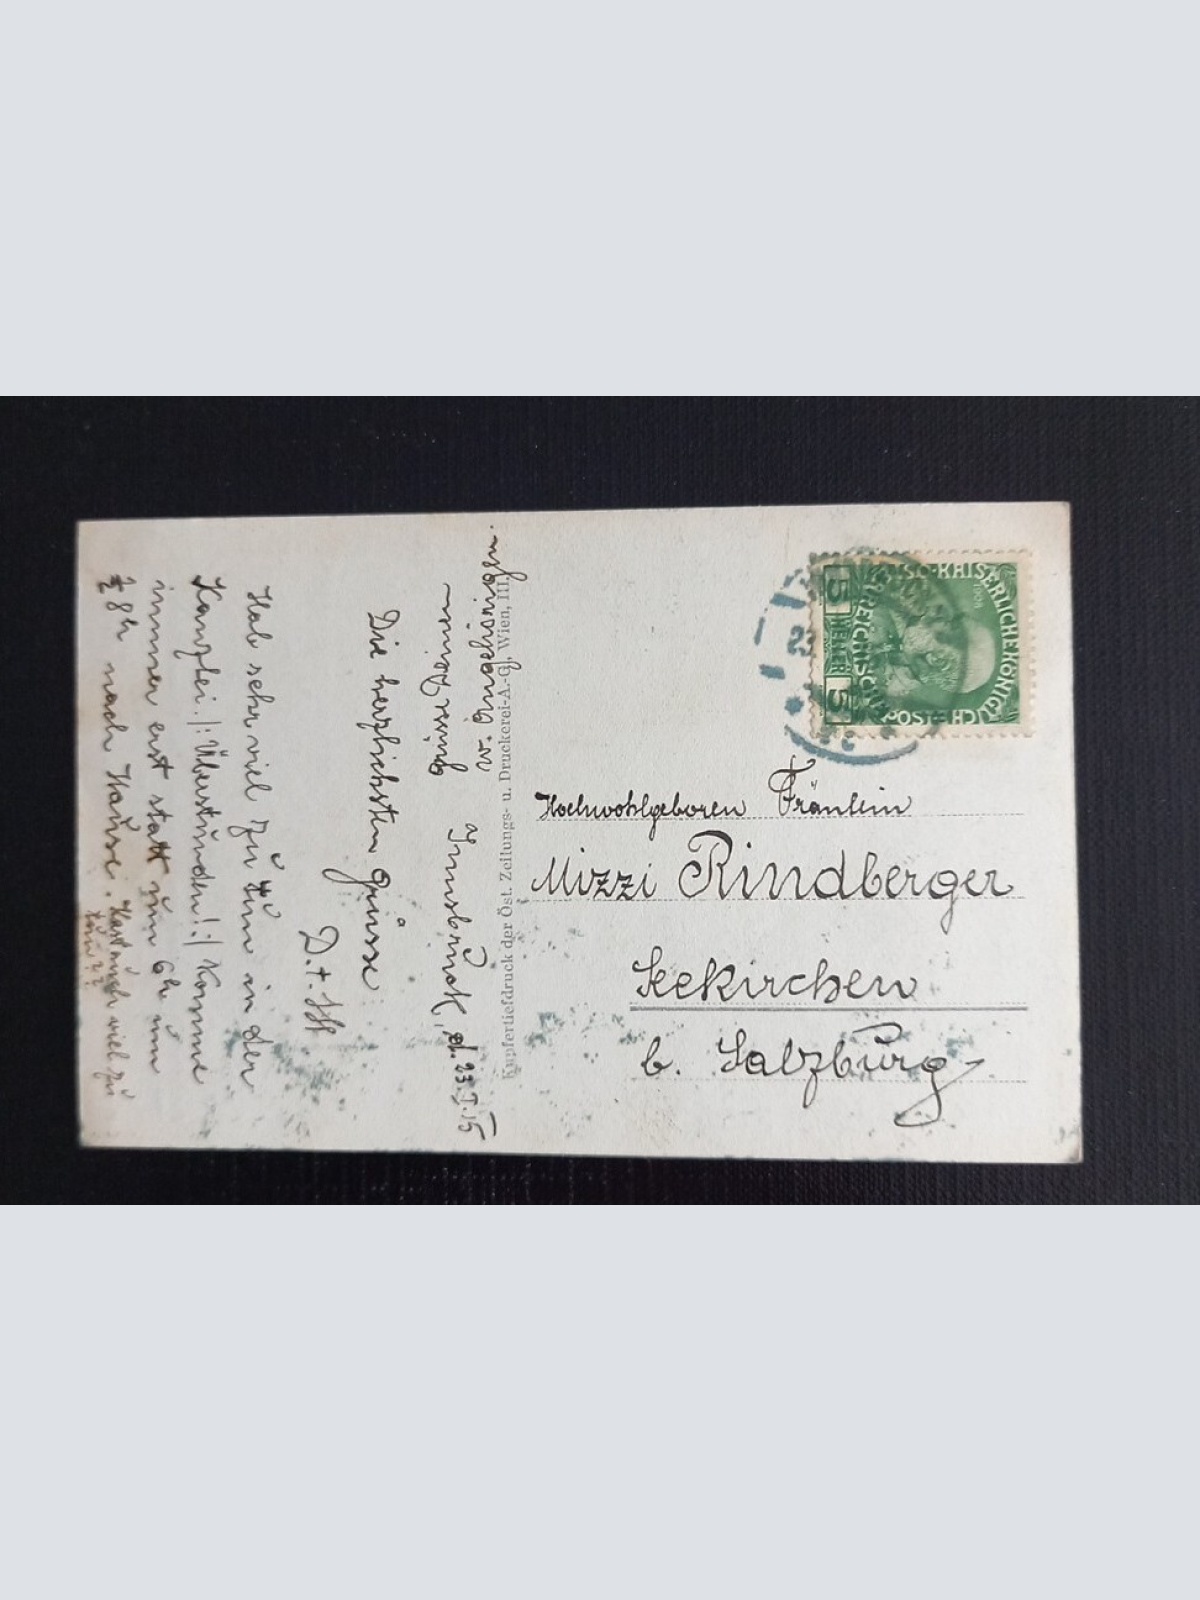 Innsbruck, d. 23.I.15
Grüsse Deinen
w. Angehörigen.
Die herzlichsten Grüsse
D. + 
Hab sehr viel zu tun in der
Kanzlei. /:Überstunden!:/ Komme
immer erst statt um 6h um
½ 8h nach Hause. Hast auch viel zu
tun??
Kupfertiefdruck der Öst. Zeitungs- u. Druckerei-A.-G., Wien, III.
KAISERLICHE KÖNIGLICHE
ÖSTERREICHISCHE POST
1908
5 HELLER 5
23
Hochwohlgeboren Fräulein
Mizzi Rindberger
Seekirchen
b. Salzburg